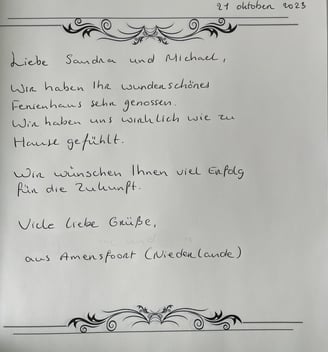 21 oktober 2023
Liebe Sandra und Michael,
Wir haben Ihr wunderschönes
Ferienhaus sehr genossen.
Wir haben uns wirklich wie zu
Hause gefühlt.
Wir wünschen Ihnen viel Erfolg
für die Zukunft.
Viele liebe Grüße,
aus Amersfoort (Niederlande)